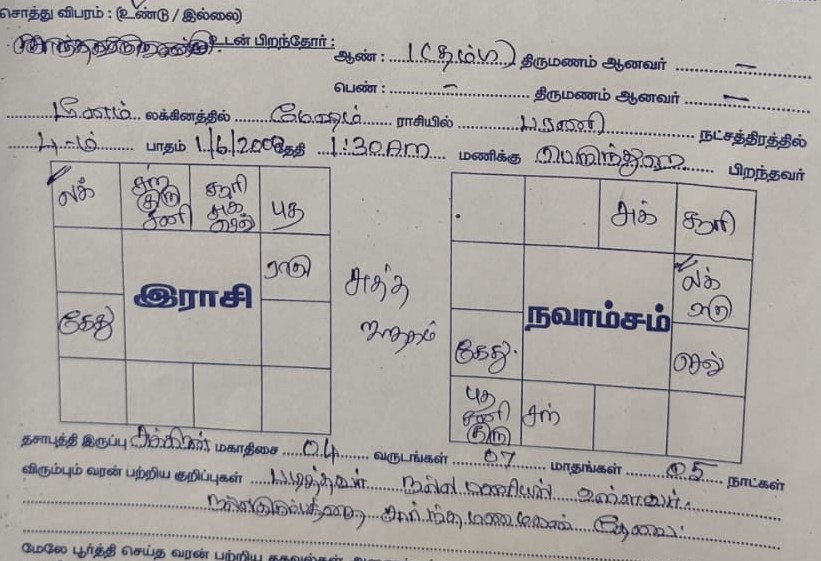 சொத்து விபரம் : (உண்டு / இல்லை)
உடன் பிறந்தோர் : ஆண் : 1 (தம்பி) திருமணம் ஆனவர் –
பெண் : – திருமணம் ஆனவர் –
மீனம் லக்கினத்தில் மேஷம் ராசியில் பரணி நட்சத்திரத்தில்
4-ம் பாதம் 1/6/2000 தேதி 1:30 AM மணிக்கு பெருந்துறை பிறந்தவர்
லக்
சந்
குரு
சனி
சூரி
சுக்
செவ்
புத
ராகு
கேது
இராசி
சுக்
சூரி
லக்
ராகு
செவ்
கேது
புத
சனி
குரு
சந்
நவாம்சம்
சுத்த
ஜாதகம்
தசாபுத்தி இருப்பு சுக்கிரன் மகாதிசை 04 வருடங்கள் 07 மாதங்கள் 05 நாட்கள்
விரும்பும் வரன் பற்றிய குறிப்புகள் படித்தவர் நல்ல பணியில் உள்ளவர்.
நல்ல குடும்பத்தை சார்ந்த மணமகன் தேவை.
மேலே பூர்த்தி செய்த வரன் பற்றிய தகவல்கள்